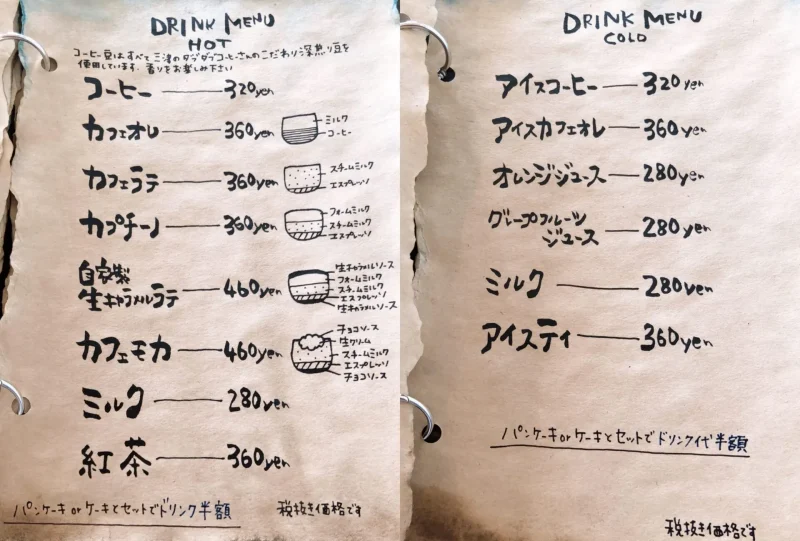 DRINK MENU
HOT
コーヒー豆はすべて三津のタブタブコーヒーさんのこだわり深煎り豆を
使用しています。香りをお楽しみ下さい
コーヒー 320yen
カフェオレ 360yen
ミルク
コーヒー
カフェラテ 360yen
スチームミルク
エスプレッソ
カプチーノ 360yen
フォームミルク
スチームミルク
エスプレッソ
自家製
生キャラメルラテ 460yen
生キャラメルソース
フォームミルク
スチームミルク
エスプレッソ
生キャラメルソース
カフェモカ 460yen
チョコソース
生クリーム
スチームミルク
エスプレッソ
チョコソース
ミルク 280yen
紅茶 360yen
パンケーキorケーキとセットでドリンク半額
税抜き価格です
DRINK MENU
COLD
アイスコーヒー 320yen
アイスカフェオレ 360yen
オレンジジュース 280yen
グレープフルーツ
ジュース 280yen
ミルク 280yen
アイスティ 360yen
パンケーキorケーキとセットでドリンク代半額
税抜き価格です